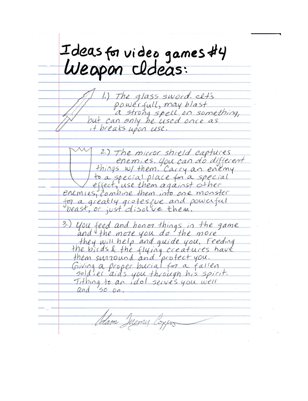 Ideas for video games #4
Weapon Ideas:
1.) The glass sword. It's
powerfull, may blast
a strong spell on something,
but can only be used once as
it breaks upon use.
2.) The mirror shield captures
enemies. You can do different
things w/ them. Carry an enemy
to a special place for a special
effect, use them against other
enemies, combine them into one monster
for a greatly grotesque and powerful
beast, or just disolve them.
3.) You feed and honor things in the game
and the more you do the more
they will help and guide you. Feeding
the birds & the flying creatures have
them surround and protect you.
Giving a proper burial for a fallen
soldier aids you through his spirit.
Tithing to an idol serves you well
and so on.